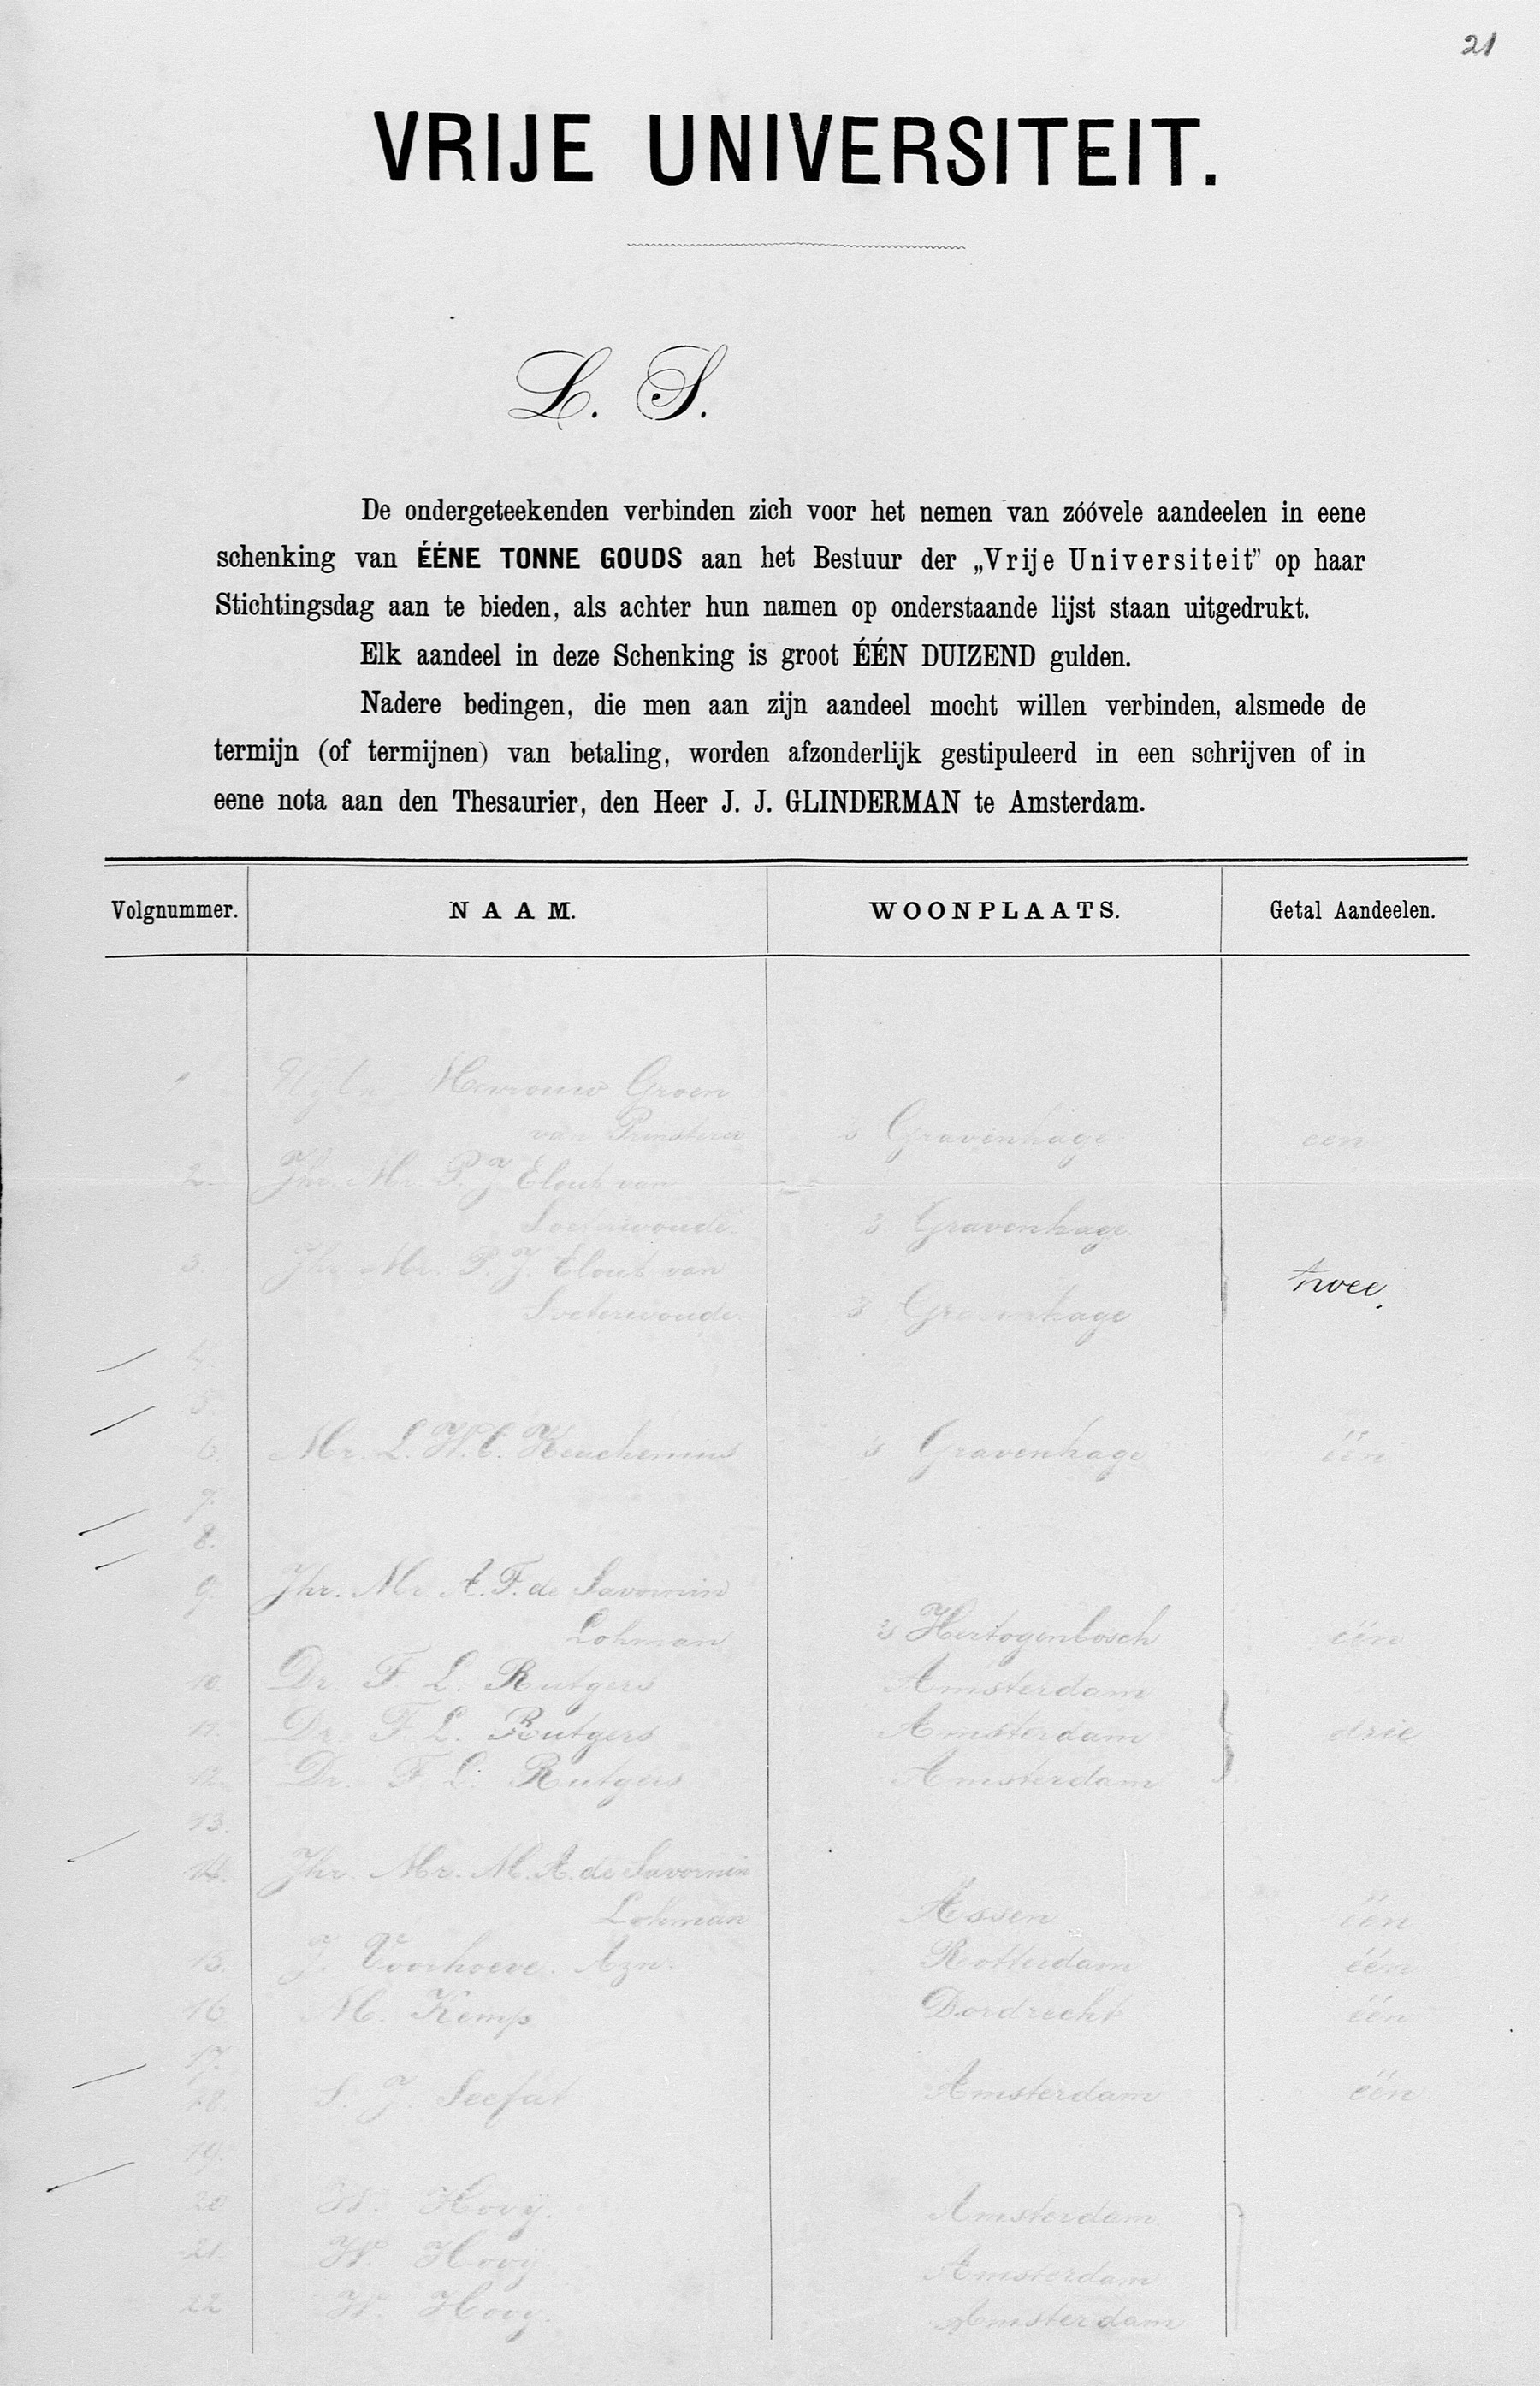 21
VRIJE UNIVERSITEIT.
L. S.
De ondergeteekenden verbinden zich voor het nemen van zóóvele aandeelen in eene
schenking van ÉÉNE TONNE GOUDS aan het Bestuur der „Vrije Universiteit” op haar
Stichtingsdag aan te bieden, als achter hun namen op onderstaande lijst staan uitgedrukt.
Elk aandeel in deze Schenking is groot ÉÉN DUIZEND gulden.
Nadere bedingen, die men aan zijn aandeel mocht willen verbinden, alsmede de
termijn (of termijnen) van betaling, worden afzonderlijk gestipuleerd in een schrijven of in
eene nota aan den Thesaurier, den Heer J. J. GLINDERMAN te Amsterdam.
Volgnummer. NAAM. WOONPLAATS. Getal Aandeelen.
1 Mevrouw Groen
van Prinsterer 's Gravenhage een
2. Jhr. Mr. P. J. Elout van
Soeterwoude. 's Gravenhage.
3. Jhr. Mr. P. J. Elout van
Soeterwoude. 's Gravenhage twee.
4.
5
6. Mr. L. W. C. Keuchenius 's Gravenhage één
7.
8.
9. Jhr. Mr. A. F. de Savornin
Lohman 's Hertogenbosch één
10. Dr. F. L. Rutgers Amsterdam
11. Dr. F. L. Rutgers Amsterdam drie
12. Dr. F. L. Rutgers Amsterdam
13.
14. Jhr. Mr. M. A. de Savornin
Lohman Assen één
15. J. Voorhoeve. Azn. Rotterdam één
16 M. Kemp Dordrecht één
17.
18. S. J. Seefat Amsterdam één
19.
20 W. Hovy. Amsterdam.
21. W. Hovy. Amsterdam
22 W. Hovy. Amsterdam